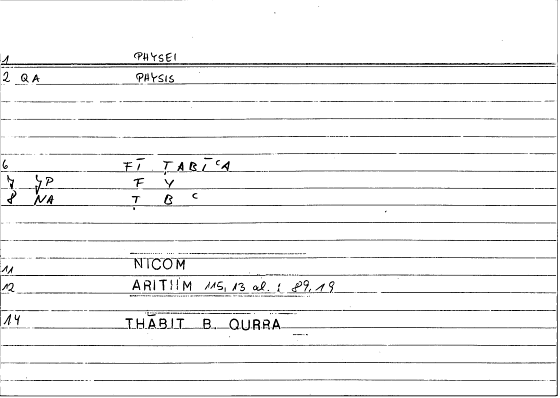 1 PHYSEI
2 QA PHYSIS
6 FĪ ṬABĪᶜA
7 JP F Y
8 NA Ṭ B ᶜ
11 NICOM
12 ARITHM 115, 13 al. : 89, 19
14 THĀBIT B. QURRA